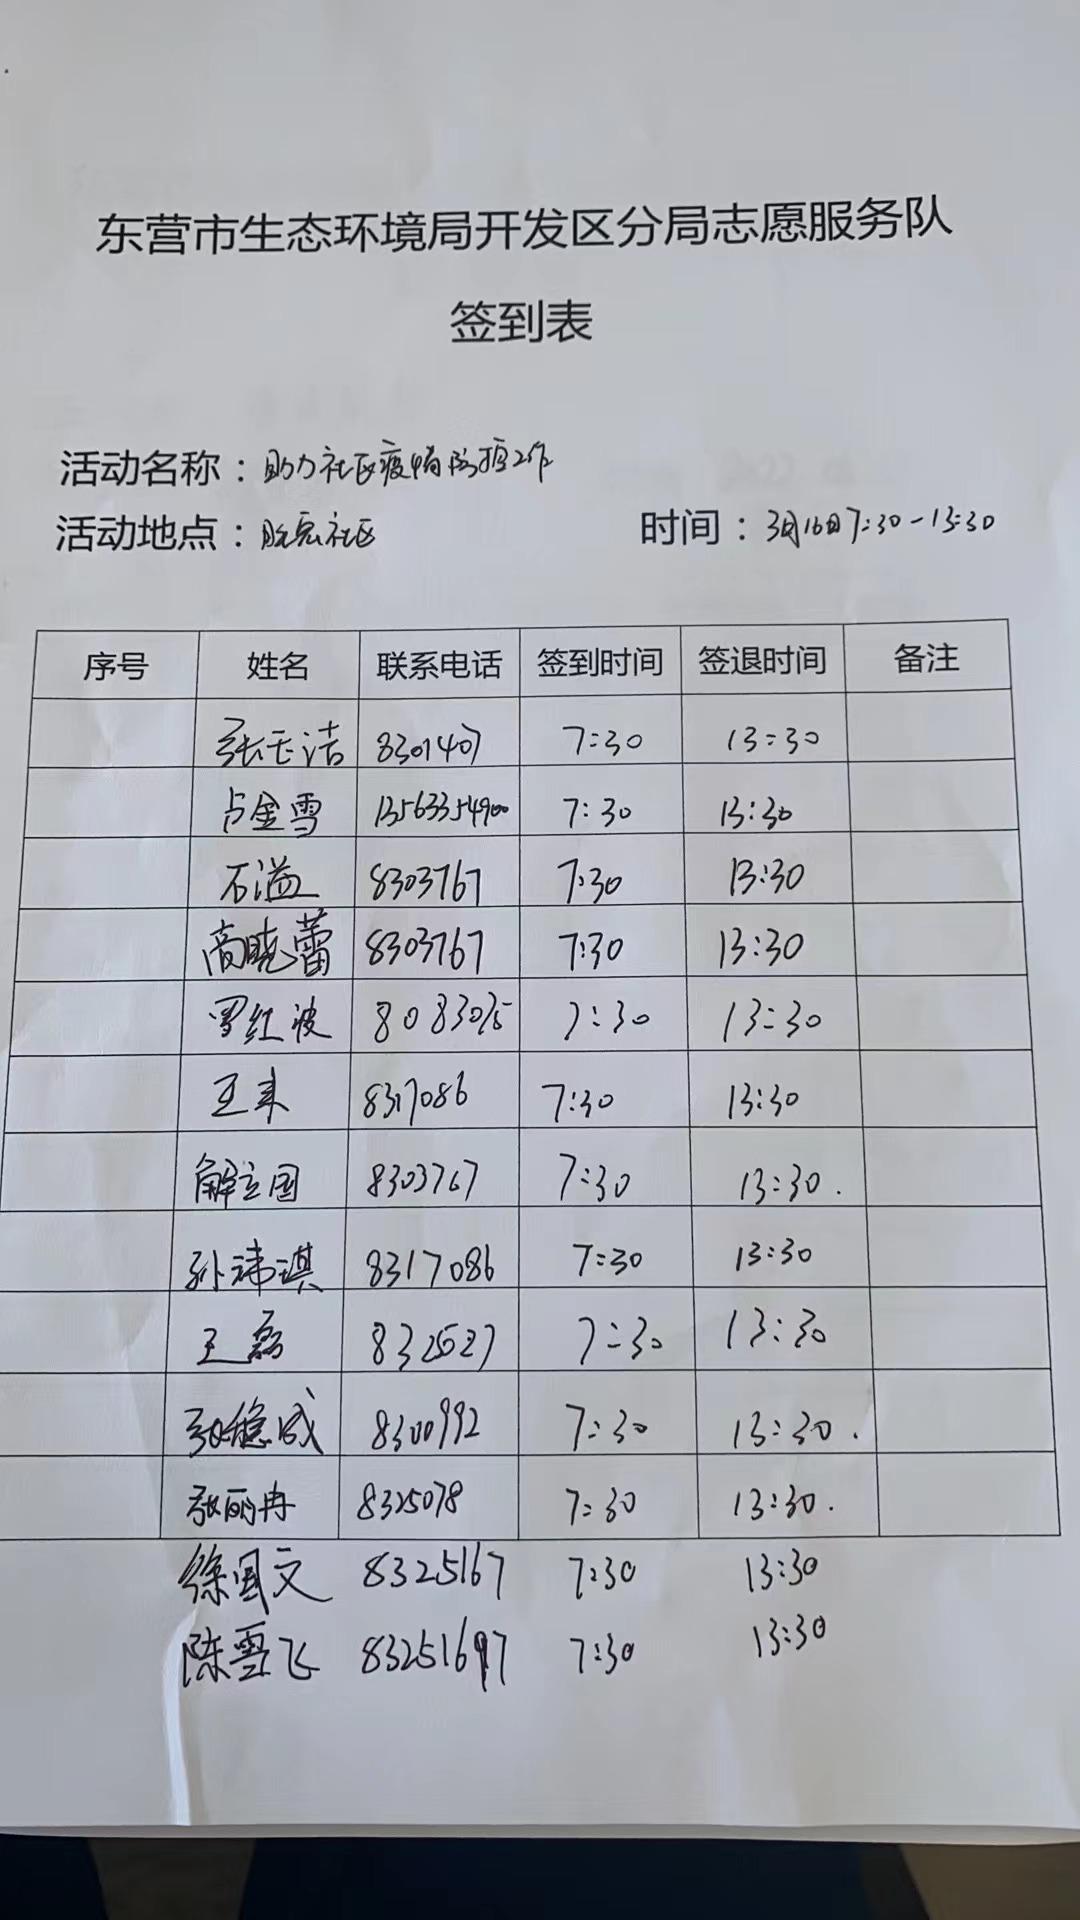 东营市生态环境局开发区分局志愿服务队
签到表
活动名称：助力社区疫情防控工作
活动地点：胜宏社区 时间：3月16日7:30-13:30
序号 姓名 联系电话 签到时间 签退时间 备注
张玉洁 8301407 7:30 13:30
卢金雪 13563354900 7:30 13:30
石溢 8303767 7:30 13:30
高晓蕾 8303767 7:30 13:30
罗红波 8083015 7:30 13:30
王来 8317086 7:30 13:30
解立国 8303767 7:30 13:30.
孙祎琪 8317086 7:30 13:30
王磊 832527 7:30 13:30
张德成 8300992 7:30 13:30.
张丽冉 8325078 7:30 13:30.
徐国文 8325167 7:30 13:30
陈雪飞 8325167 7:30 13:30